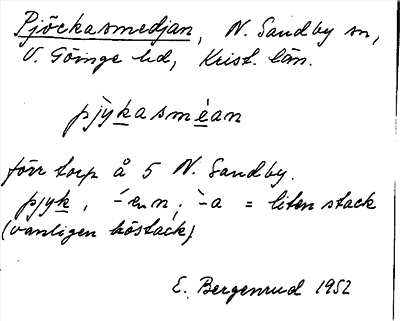 Pjöckasmedjan, N. Sandby sn,
V. Göinge hd, Krist. län.
pjỳkasméan
förr torp å 5 N. Sandby.
pjyk, ´-en, `-a = liten stack
(vanligen höstack)
E. Bergenrud 1952